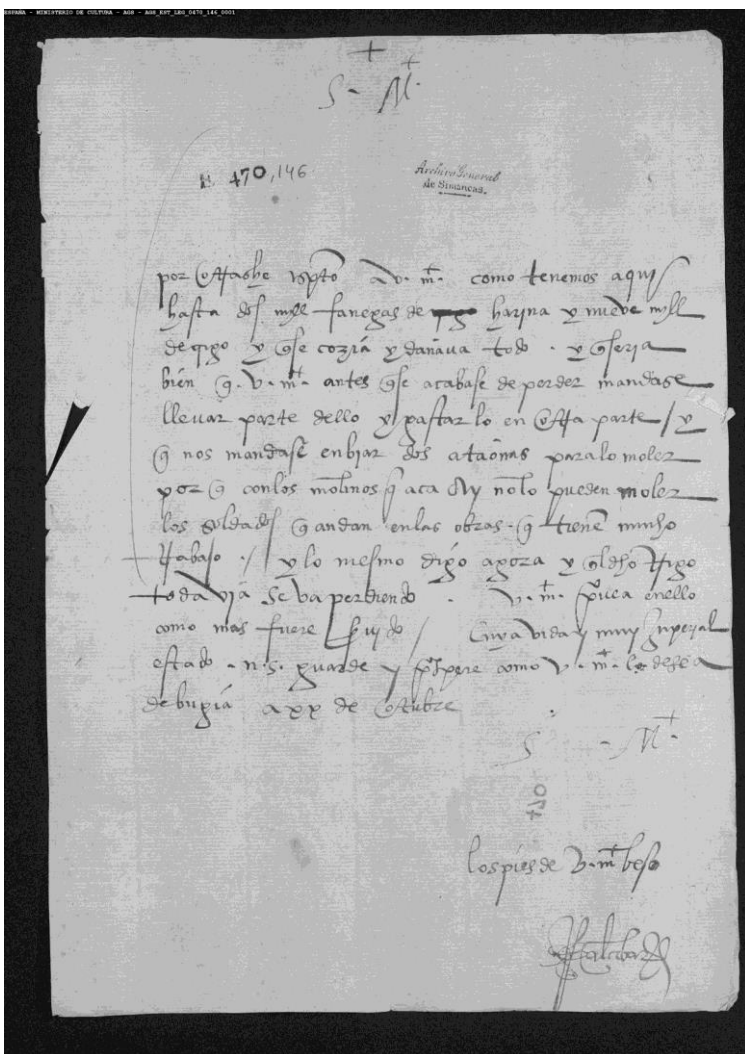 ESPAÑA - MINISTERIO DE CULTURA - AGS - AGS_EST_LEG_0470_146_0001
S. M.
E 470,146
Archivo General
de Simancas.
por otras he a v. mt. como tenemos aqui
hasta dos myll fanegas de harina y nueve myll
de trigo y q se cozia y dañava todo. y q seria
bien q. v. mt. antes q se acabase de perder mandase
llevar parte dello y gastar lo en otra parte / y
q nos mandase enbiar dos ataonas para lo moler
por q con los molinos q aca ay no lo pueden moler
los soldados q andan en las obras. q tienen mucho
trabajo. / y lo mesmo digo agora y q el dho trigo
toda via se va perdiendo. v. mt. provea en ello
como mas fuere servido / Cuya vida y muy ynperial
estado. n. s. guarde y prospere como v. mt. lo desea
de bugia a xx de otubre
S. M.
470
los pies de v. mt. beso